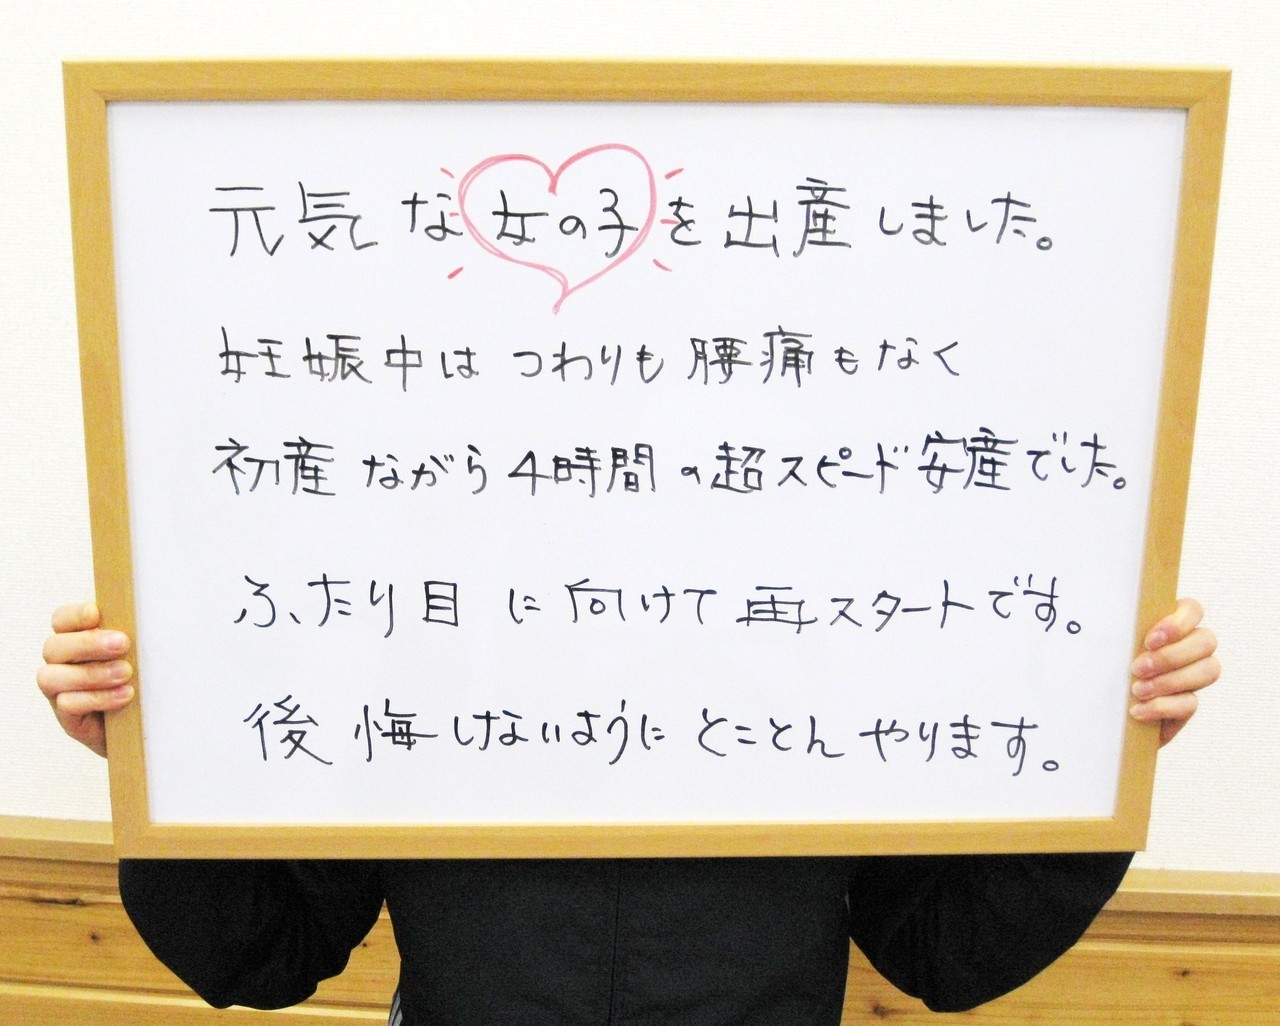 元気な女の子を出産しました。
妊娠中はつわりも腰痛もなく
初産ながら4時間の超スピード安産でした。
ふたり目に向けて再スタートです。
後悔しないようにとことんやります。